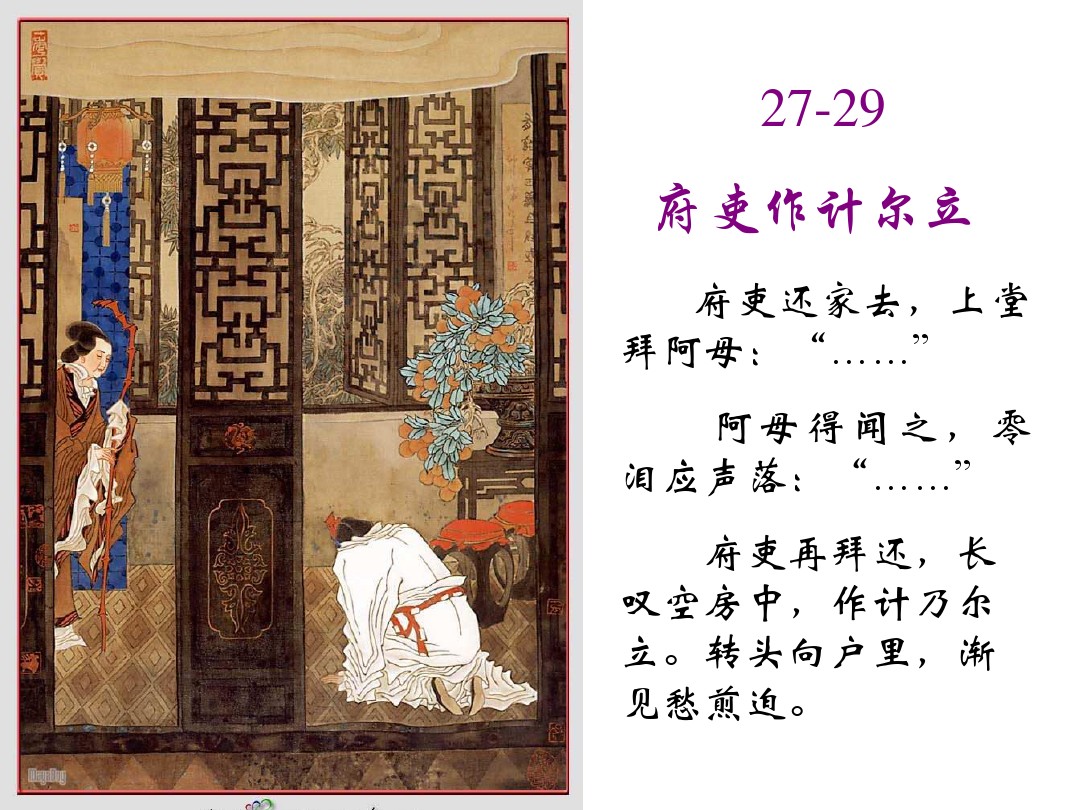 27-29
府吏作计尔立
府吏还家去，上堂
拜阿母：“……”
阿母得闻之，零
泪应声落：“……”
府吏再拜还，长
叹空房中，作计乃尔
立。转头向户里，渐
见愁煎迫。